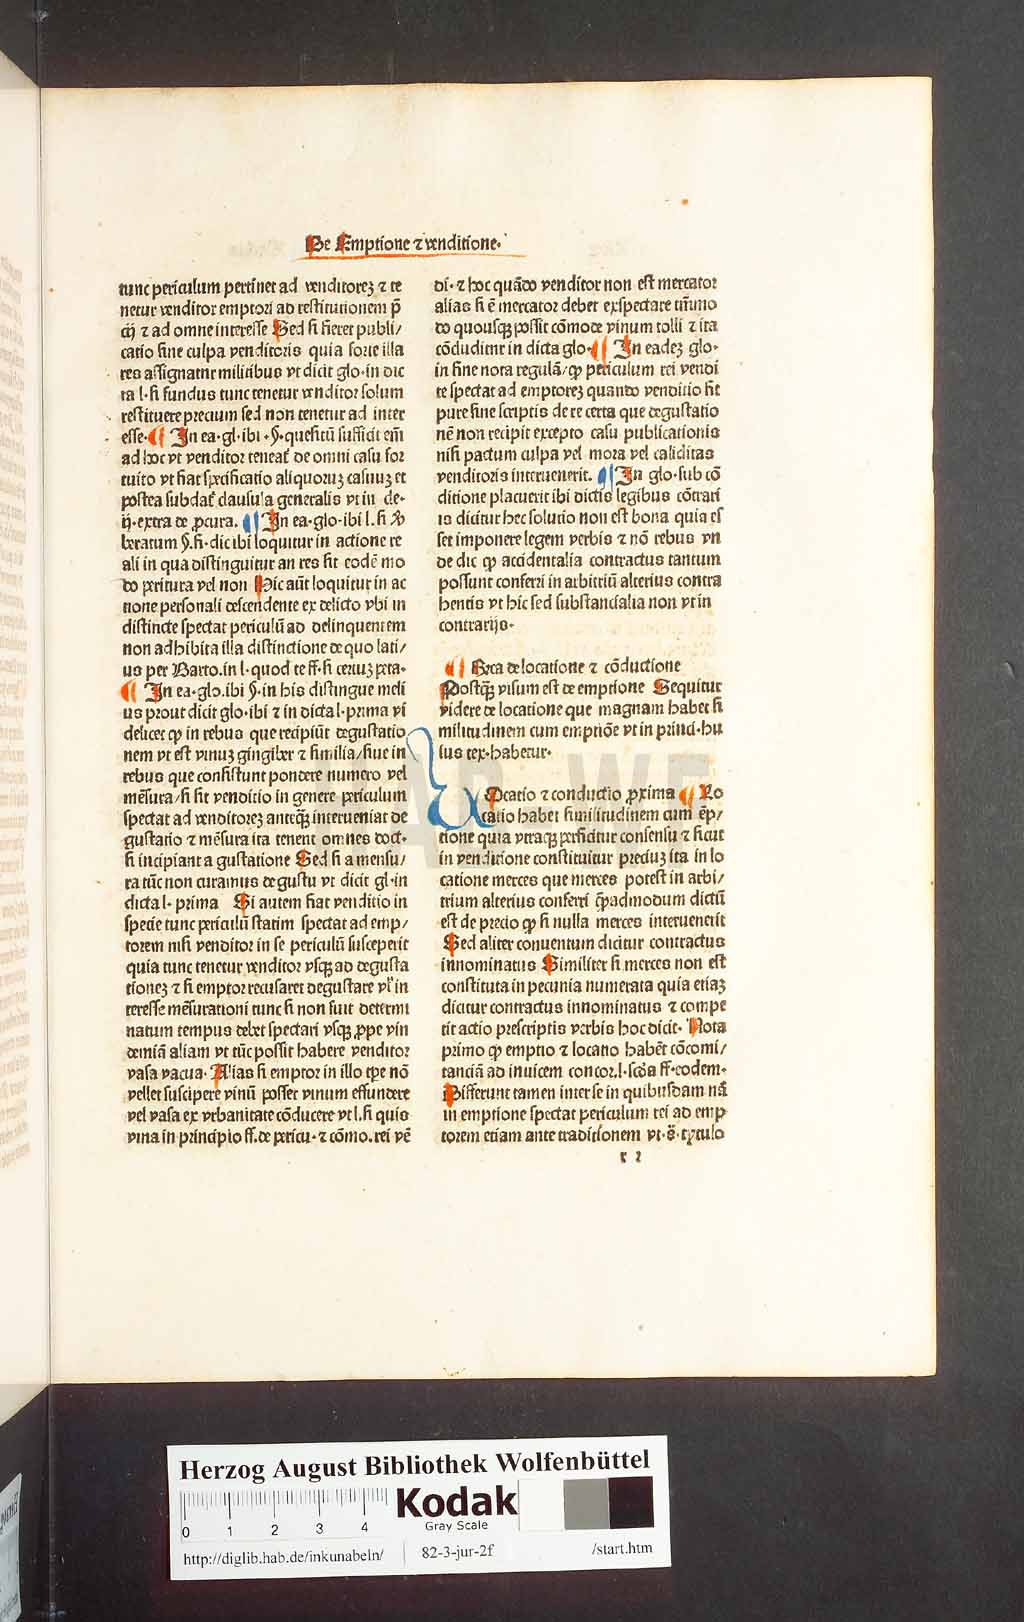 De Emptione ⁊ venditione.
tunc periculum pertinet ad venditorez ⁊ te
netur venditor emptori ad restitutionem p̄
cij ⁊ ad omne interesse Sed si fieret publi/
catio sine culpa venditoris quia forte illa
res assignatur militibus vt dicit glo·in dic
ta l·si fundus tunc tenetur venditor solum
restituere precium sed non tenetur ad inter
esse·¶ In ea·gl·ibi·§·quesitū sufficit em̄
ad hoc vt venditor teneat̄ de omni casu for
tuito vt fiat specificatio aliquoruz casuuz et
postea subdat̄ clausula generalis vt in de·
ij·extra de ꝓcura. ¶ In ea·glo·ibi l·si
beratum §·si·dic ibi loquitur in actione re
ali in qua distinguitur an res sit eodē mo
do peritura vel non Hic aūt loquitur in ac
tione personali descendente ex delicto vbi in
distincte spectat periculū ad delinquentem
non adhibita illa distinctione de quo lati/
us per Barto.in l·quod te ff·si certuz peta·
¶ In ea·glo.ibi §·in his distingue meli
us prout dicit glo·ibi ⁊ in dicta l·prima vi
delicet ꝙ in rebus que recipiūt degustatio
nem vt est vinuz gingiber ⁊ similia/siue in
rebus que consistunt pondere numero vel
mēsura/si fit venditio in genere periculum
spectat ad venditorez anteqꝫ interueniat de
gustatio ⁊ mēsura ita tenent omnes doct·
si incipiant a gustatione Sed si a mensu/
ra tūc non curamus de gustu vt dicit gl·in
dicta l·prima Si autem fiat venditio in
specie tunc periculū statim spectat ad emp/
torem nisi venditor in se periculū susceperit
quia tunc tenetur venditor vsqꝫ ad degusta
tionez ⁊ si emptor recusaret degustare vl̄ in
teresse mēsurationi tunc si non fuit determi
natum tempus debet spectari vsqꝫ ꝓpe vin
demiā aliam vt tūc possit habere venditor
vasa vacua· Alias si emptor in illo tp̄e nō
vellet suscipere vinū posset vinum effundere
vel vasa ex vrbanitate cōducere vt l.si quis
vina in principio ff.de pericu·⁊ cōmo.rei vē
di·⁊ hoc quādo venditor non est mercator
alias si ē mercator debet exspectare
do quousqꝫ possit cōmode vinum tolli ⁊ ita
cōcluditur in dicta glo·¶ In eadez glo·
in fine nota regulā/ꝙ periculum rei vendi
te spectat ad emptorez quando venditio fit
pure sine scriptis de re certa que degustatio
nē non recipit excepto casu publicationis
nisi pactum culpa vel mora vel caliditas
venditoris interuenerit. ¶ In glo·sub cō
ditione placuerit ibi dictis legibus cōtrari
is dicitur hec solutio non est bona quia es
set imponere legem verbis ⁊ nō rebus vn
de dic ꝙ accidentalia contractus tantum
possunt conferri in arbitriū alterius contra
hentis vt hic sed substancialia non vt in
contrarijs·
¶ de locatione ⁊ cōductione
Postqꝫ visum est de emptione Sequitur
videre de locatione que magnam habet si
militudinem cum emptiōe vt in princi·hu
ius tex·habetur·
Ocatio ⁊ conductio ꝓxima ¶ Lo
catio habet similitudinem cum ēp/
tione quia vtraqꝫ perficitur consensu ⁊ sicut
in venditione constituitur preciuz ita in lo
catione merces que merces potest in arbi/
trium alterius conferri q̄padmodum dictū
est de precio ꝙ si nulla merces interuenerit
Sed aliter conuentum dicitur contractus
innominatus Similiter si merces non est
constituta in pecunia numerata quia etiaz
dicitur contractus innominatus ⁊ compe
tit actio prescriptis verbis hoc dicit· Nota
primo ꝙ emptio ⁊ locatio habēt cōcomi/
tanciā ad inuicem concor.l·scd̄a ff·eodem·
Differunt tamen inter se in quibusdam nā
in emptione spectat periculum rei ad emp
torem etiam ante traditionem vt·s̄·tytulo
r 2
HAB-WF
Herzog August Bibliothek Wolfenbüttel
0 1 2 3 4
Kodak
Gray Scale
http://diglib.hab.de/inkunabeln/ 82-3-jur-2f /start.htm